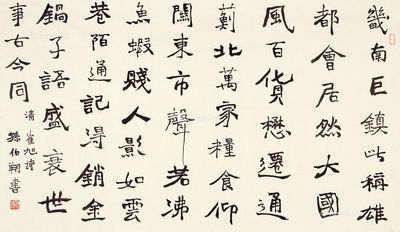 畿南巨鎮此稱雄
都會居然大國
風百貨懋遷通
薊北萬家糧食仰
關東市聲若沸
魚蝦賤人影如雲
巷陌通記得銷金
鍋子語盛衰世
事古今同
清崔旭詩
孫伯翔書